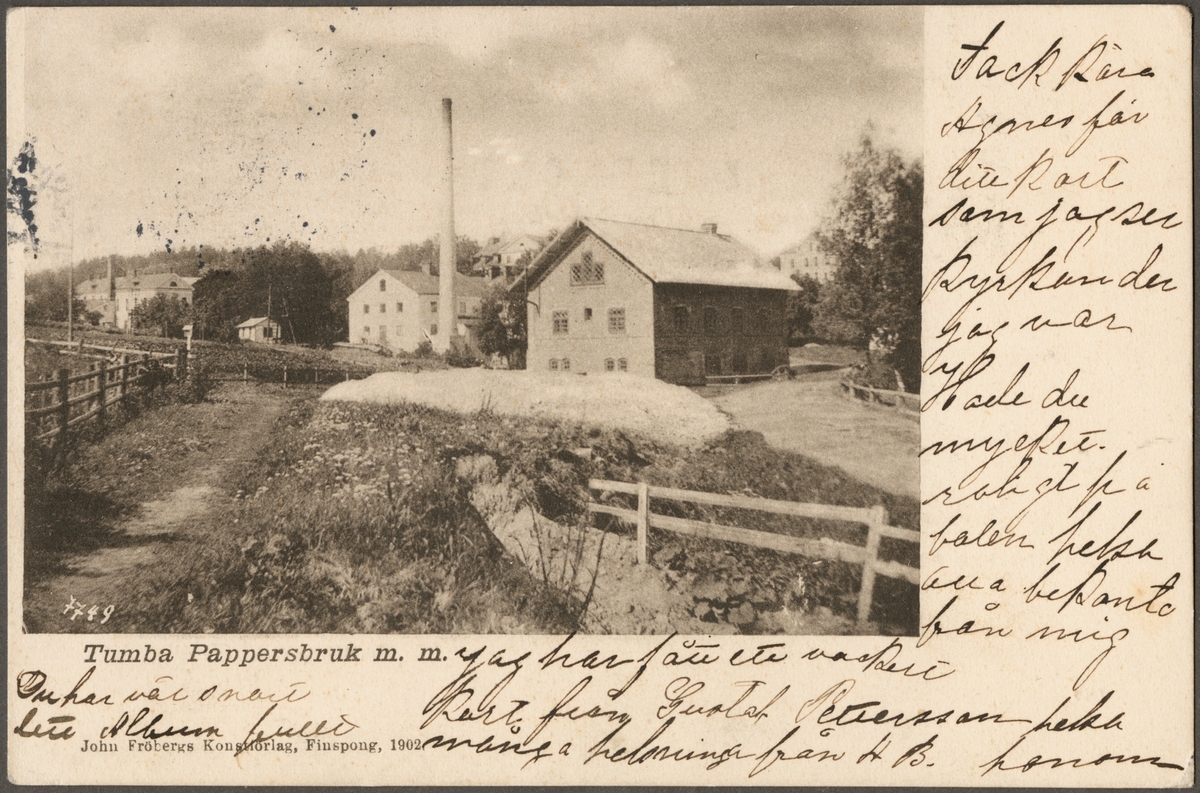 Tack kära
Agnes för
ditt kort
som jag ser
kyrkan der
jag var
Hade du
mycket
roligt på
balen helsa
alla bekanta
från mig
7749
Tumba Pappersbruk m. m.
jag har fått ett vackert
kort från Gustaf Pettersson helsa
många helsninga från H B. honom
Du har väl snart
ditt Album fullt
John Fröbergs Konstförlag, Finspong, 1902